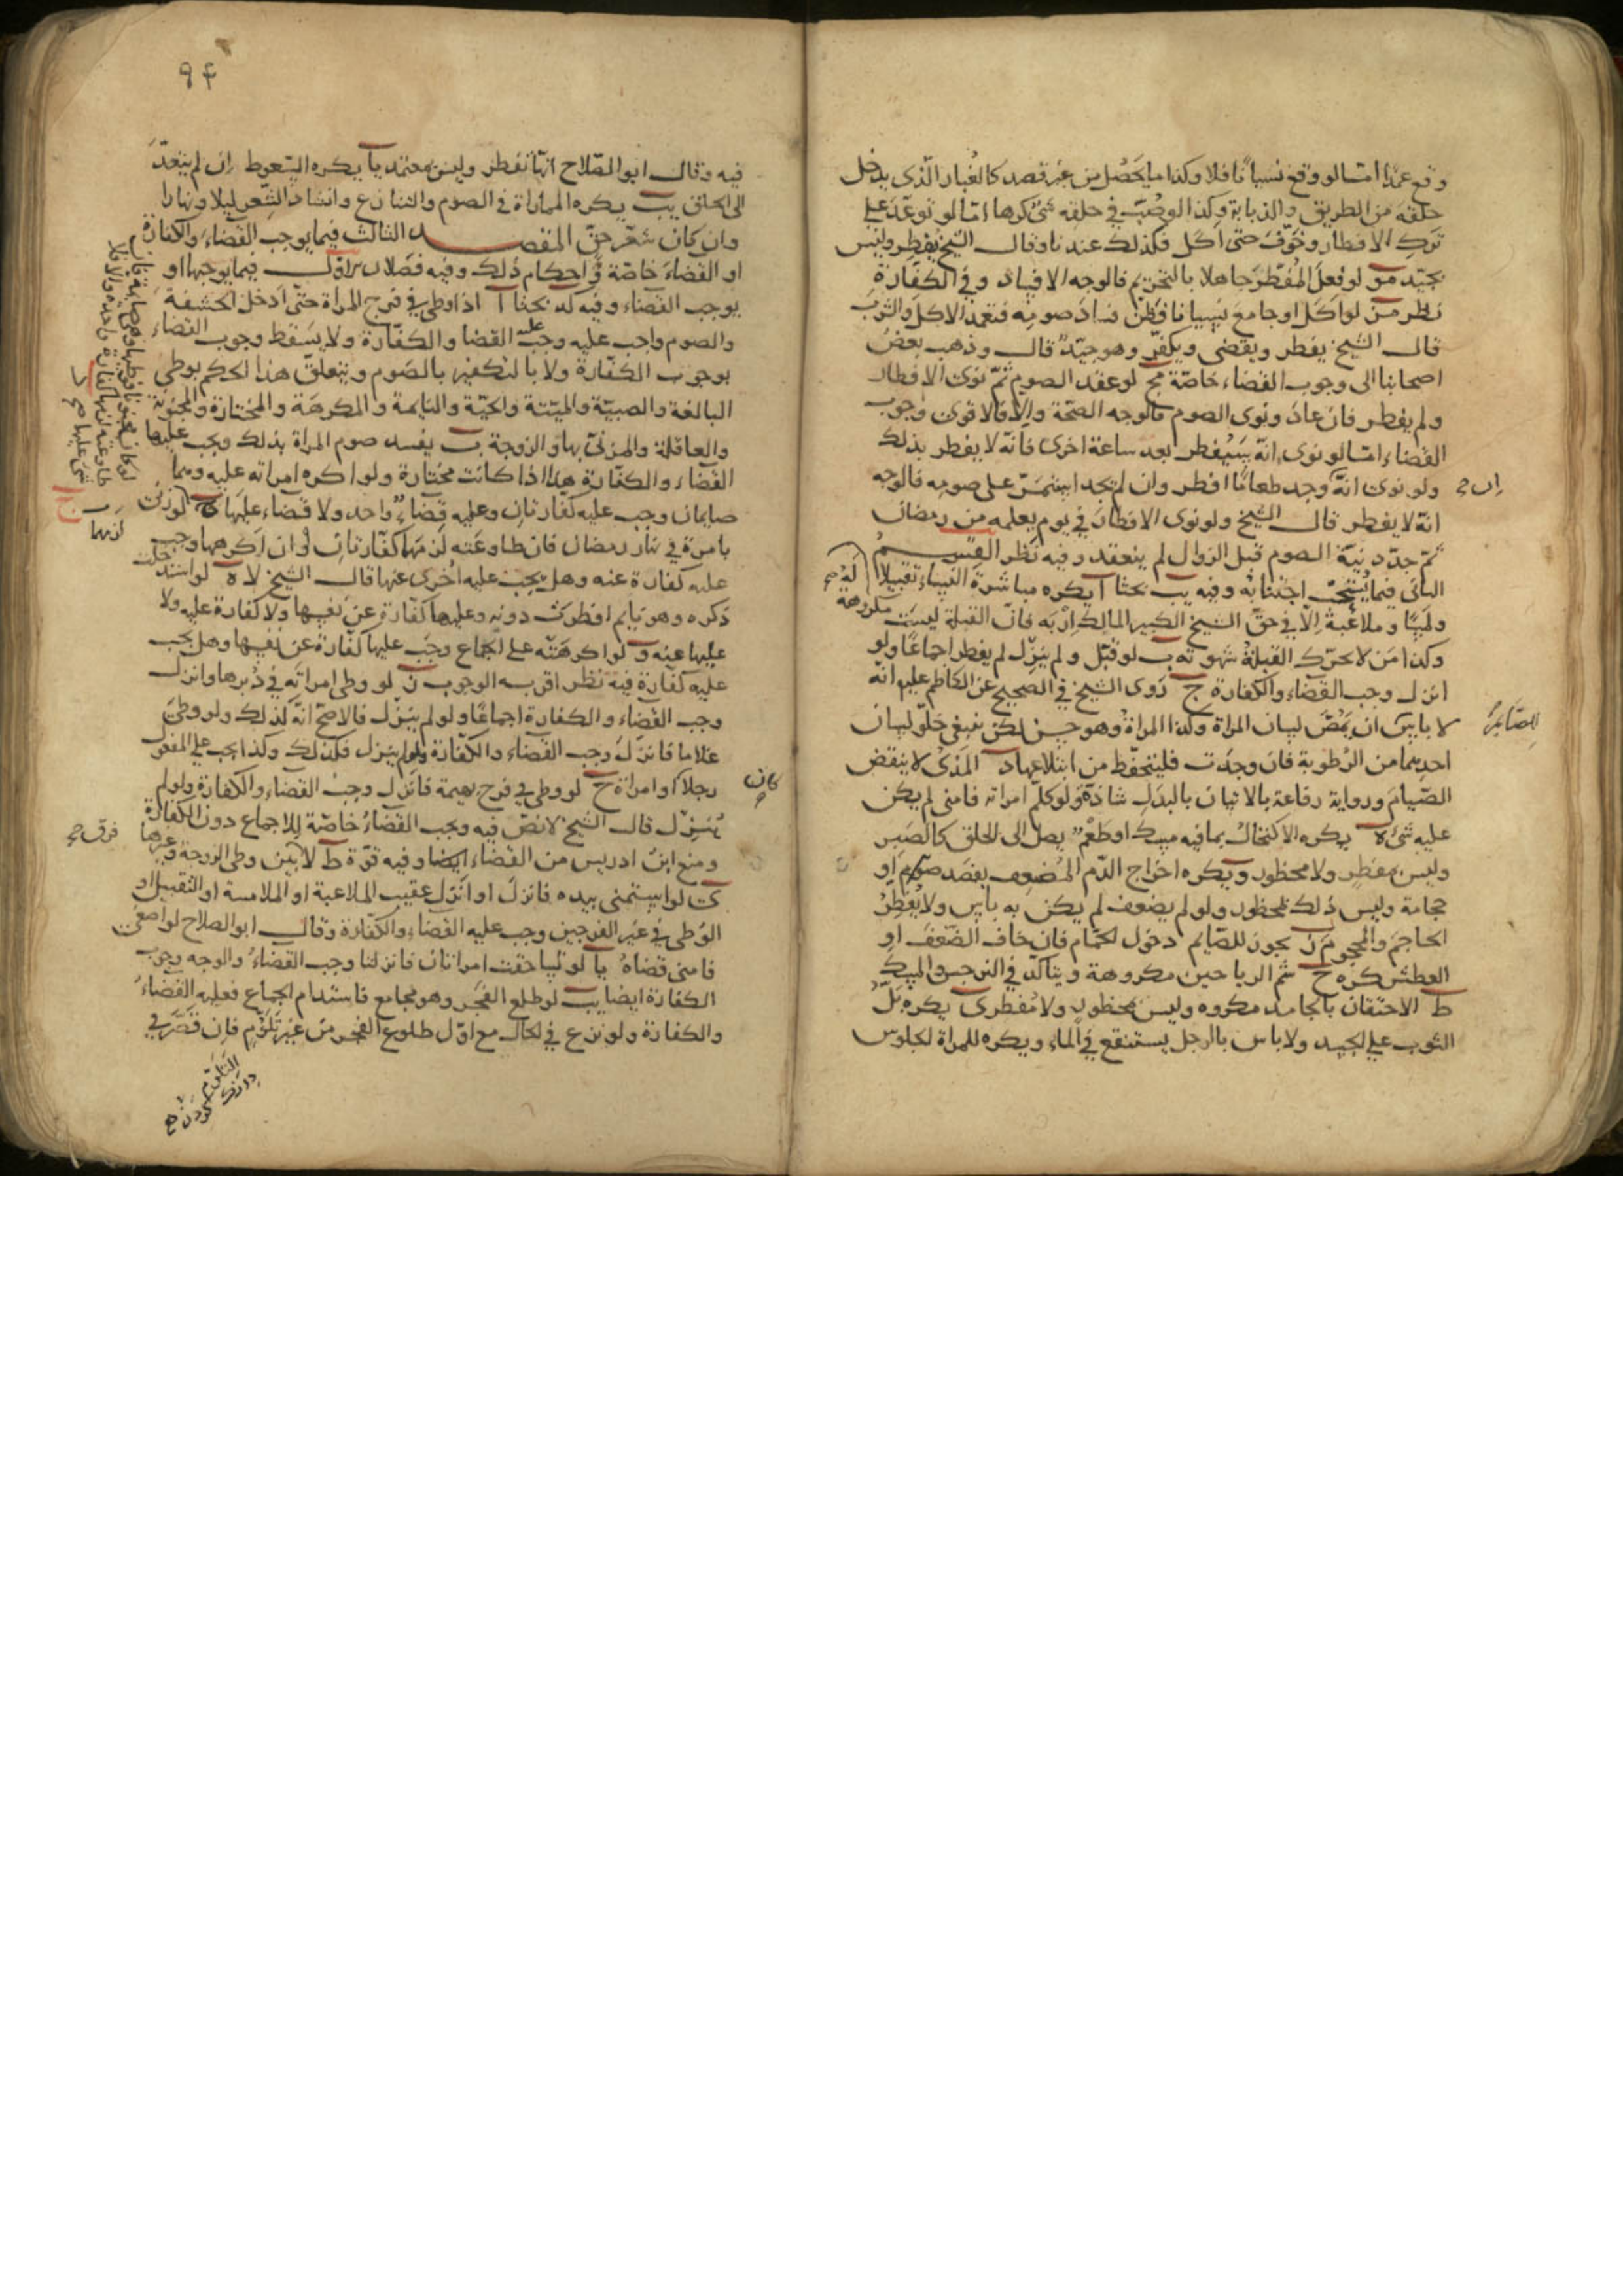 وقع عمدا امّا لو وقع نسيانا فلا وكذا ما يحصل من غير قصد كالغبار الّذي يدخل
حلقه من الطريق والذبابة وكذا لو صُبّ في حلقه شئ كرها امّا لو توعّد على
ترك الافطار وخوّف حتى اكل فكذلك عندنا وقال الشيخ يفطر وليس
بجيّد مو لو فعل المُفطر جاهلا بالتحريم فالوجه الافساد وفي الكفارة
نظر مز لو اكل او جامع نسيانا فظنّ فساد صومه فتعمد الاكل والشرب
قال الشيخ يفطر ويقضى ويكفّر وهو جيّد قال وذهب بعض
اصحابنا الى وجوب القضاء خاصّة مح لو عقد الصوم ثمّ نوى الافطار
ولم يفطر فان عاد ونوى الصوم فالوجه الصحّة والا فالاقوى وجوب
القضاء امّا لو نوى انّه سيُفطر بعد ساعة اخرى فانّه لا يفطر بذلك
ولو نوى انّه وجد طعامًا افطر وان لم يجد استمرّ على صومه فالوجه
ان صح
انّه لا يفطر قال الشيخ ولو نوى الافطار في يوم يعلمه من رمضان
ثمّ جدّد نيّة الصوم قبل الزوال لم ينعقد وفيه نظر القسم
الثاني فيما يُستحبّ اجتنابه وفيه يب بحثا آ يكره مباشرة النساء تقبيلا
ولمسًا وملاعبةً الّا في حقّ الشيخ الكبير المالك اربه فانّ القبلة ليست مكروهة
له صح
وكذا من لا تحرّك القبلة شهوته ب لو قبّل ولم ينزل لم يفطر اجماعًا ولو
انزل وجب القضاء والكفارة ج روى الشيخ في الصحيح عن الكاظم عليه انّه
لا باس ان يمُصّ لسان المراة وكذا المراة وهو حسن لكن ينبغي خلوّ لسان
للصائم
احدهما من الرّطوبة فان وجدت فليتحفّظ من ابتلاعها د المذي لا ينقض
الصّيام ورواية رفاعة بالاتيان بالبدل شاذّة ولو كلّم امراته فامنى لم يكن
عليه شئ ه يكره الاكتحالُ بما فيه مسك او طعم يصل الى الحلق كالصّبر
وليس بمفطر ولا محظور و يكره اخراج الدّم المُضعِف بفصد او
حجامة وليس ذلك بمحظور ولو لم يضعف لم يكن به باس ولا يُفطِرُ
الحاجم والمحجوم ز يجوز للصّايم دخول الحمّام فان خاف الضّعف او
العطش كره ح شم الرياحين مكروهة ويتاكّد في النرجس والمسك
ط الاحتقان بالجامد مكروه وليس بمحظور ولا مُفطر ى يكره بَلّ
الثوب على الجسد ولا باس بالرجل يستنقع في الماء ويكره للمراة الجلوس
٩٤
فيه وقال ابو الصّلاح انّها تفطر وليس بمعتمد يا يكره السّعوط ان لم يتعدّ
الى الحلق يب يكره المماراة في الصوم والتنازع وانشاد الشّعر ليلا ونهارا
وان كان شعر حقّ المقصد الثالث فيما يوجب القضاء والكفارة
او القضاء خاصّة واحكام ذلك وفيه فصلان الاوّل فيما يوجبها او
يوجب القضاء وفيه كد بحثا آ اذا وطى في فرج المراة حتّى ادخل الحشفة
والصوم واجب عليه وجب عليه القضا والكفّارة ولا يسقط وجوب القضاء
بوجوب الكفّارة ولا بالتكفير بالصّوم ويتعلّق هذا الحكم بوطى
البالغة والصبيّة والميّتة والحيّة والنايمة والمكرهة والمختارة والمجنونة
والعاقلة والمزنيّ بها والزوجة ب يفسد صوم المراة بذلك ويجب عليها
القضاء والكفّارة هذا اذا كانت مختارة ولو اكره امراته عليه وهما
صايمان وجب عليه كفّارتان وعليه قضاءٌ واحد ولا قضاء عليها ج لو زنى
بامرة في نهار رمضان فان طاوعته لزمها كفّارتان وان اكرهها وجب
لزمهما
عليه كفارة عنه وهل يجب عليه اخرى عنها قال الشيخ لا ه لو استدخلت
ذكره وهو نايم افطرت دونه وعليها كفّارة عن نفسها ولا كفارة عليه ولا
عليها عنه و لو اكرهته على الجماع وجب عليها كفّارة عن نفسها وهل يجب
عليه كفارة فيه نظر اقربه الوجوب ز لو وطى امراته في دُبرها وانزل
وجب القضاء والكفارة اجماعًا ولو لم ينزل فالاصح انّه كذلك ولو وطئ
غلاما فانزل وجب القضاء والكفّارة ولو لم ينزل فكذلك وكذا يجب على المفعول
رجلا كان او امراة ح لو وطى في فرج بهيمة فانزل وجب القضاء والكفارة ولو لم
ينزل قال الشيخ لا نصّ فيه ويجب القضاءُ خاصّة للاجماع دون الكفارة
ومنع ابن ادريس من القضاء ايضا وفيه قوّة ط لا فرق بين وطى الزوجة وغيرها
ى لو استمنى بيده فانزل او انزل عقيب الملاعبة او الملامسة او التقبيل او
الوُطى في غير الفرجين وجب عليه القضاء والكفّارة وقال ابو الصلاح لو اصغى
فامنى قضاهُ يا لو تساحقت امراتان فانزلتا وجب القضاءُ والوجه وجوب
الكفارة ايضا يب لو طلع الفجر وهو مجامع فاستدام الجماع فعليه القضاء
والكفارة ولو نزع في الحال مع اوّل طلوع الفجر من غير تلوّم فان قصّر في
التلوّم
درنك كردن صح